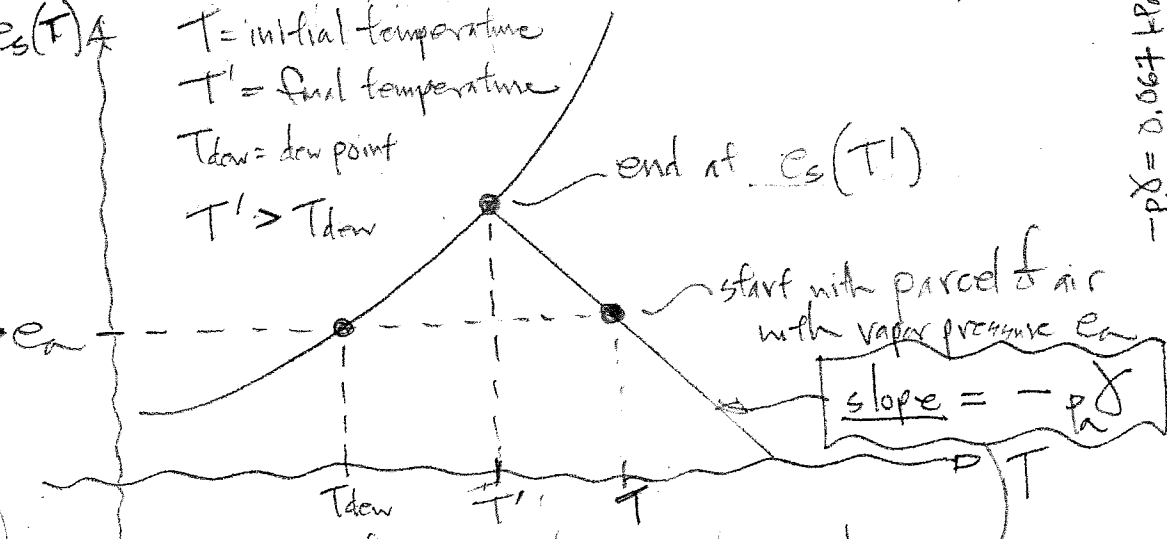 es(T)
T = initial temperature
T' = final temperature
Tdew = dew point
T' > Tdew
end at es(T')
start with parcel of air
with vapor pressure ea
ea
slope = - pa γ
Tdew T' T T
-pγ = 0.067 kPa